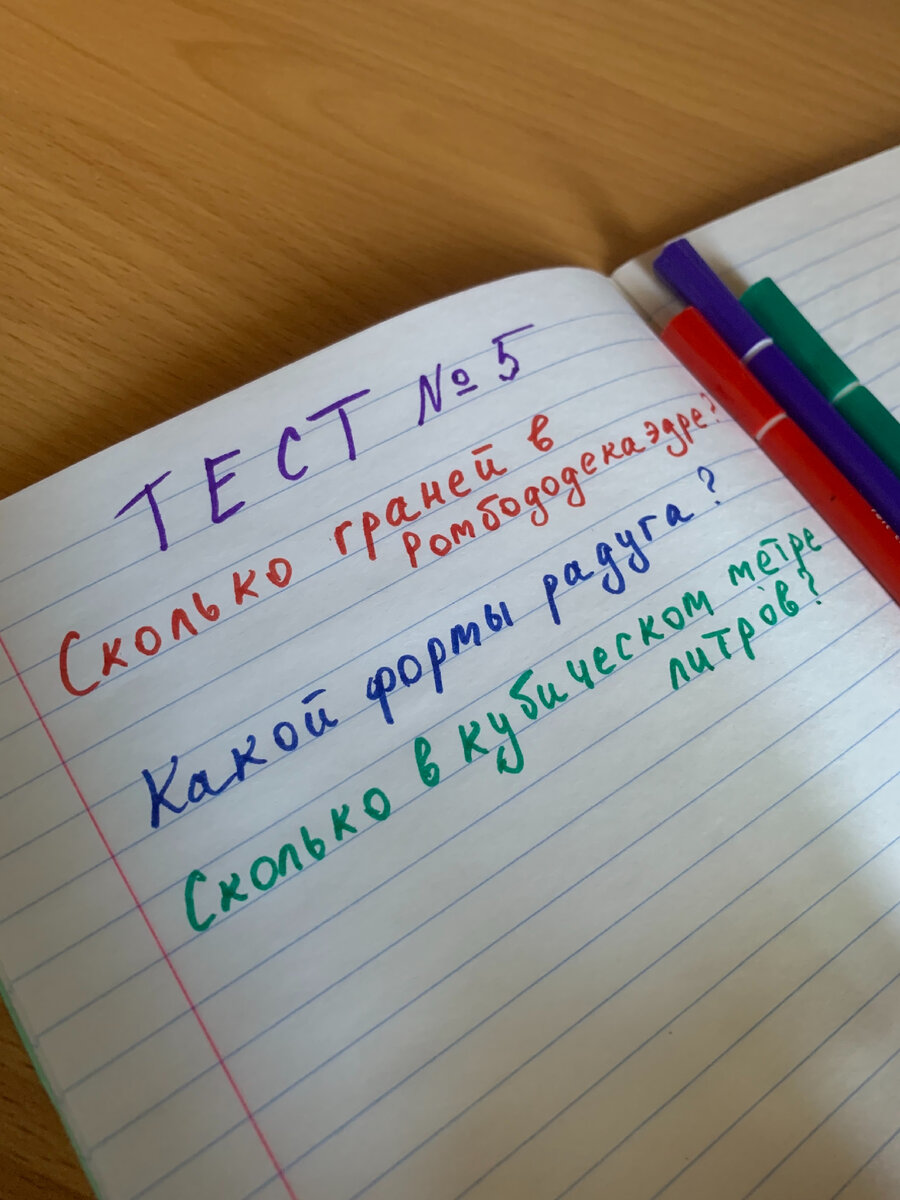 ТЕСТ № 5
Сколько граней в
ромбододекаэдре?
Какой формы радуга?
Сколько в кубическом метре
литров?